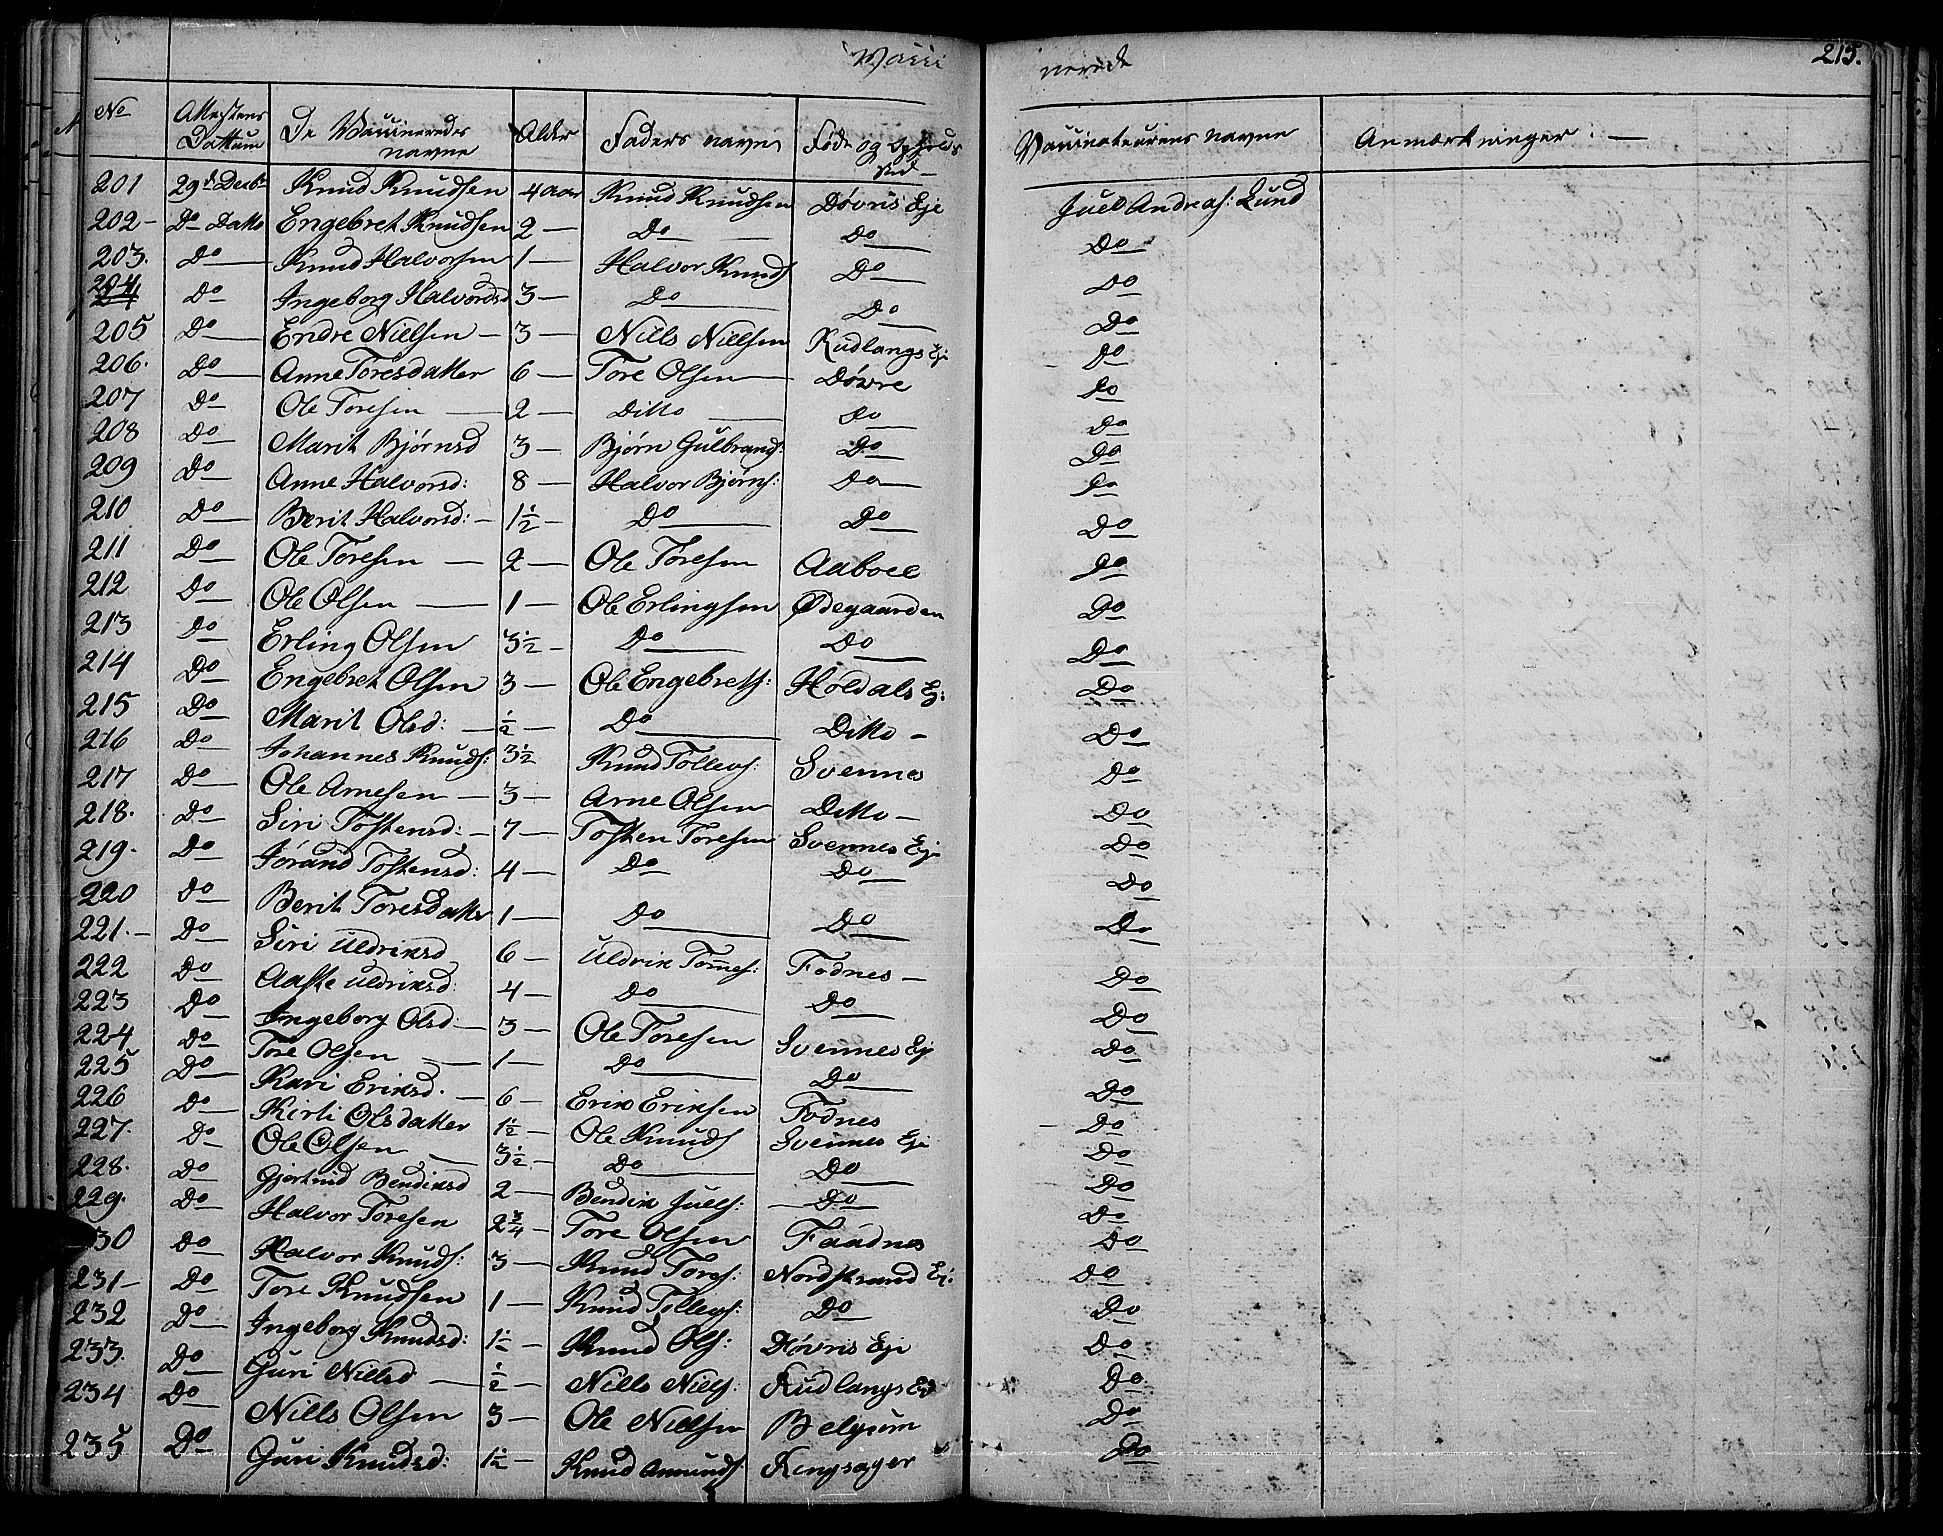 Vacci nerede 215.
No Attestens Dattum De Vaccineredes navne Alder Faders navn Føde og Opholds sted Vaccinateurens navne Anmærkninger
201 29de Decbr Knud Knudsen 4 aar Knud Knudsen Døvris Eje Juel Andreas: Lund
202 Do Datto Engebret Knudsen 2 Do Do Do
203. Do Knud Halvorsen 1 Halvor Knuds Do Do
204 Do Ingeborg Halvorsd 3 Do Do Do
205 Do Endre Nielsen 3 Nills Nielsen Rudlangs Ej Do
206. Do Anne Toresdatter 6 Tore Olsen Døvre Do
207 Do Ole Toresen 2 Ditto Do Do
208 Do Marit Bjørnsd 3 Bjørn Gulbrands: Do Do
209 Do Anne Halvorsd: 8 Halvor Bjørns: Do Do
210 Do Berit Halvorsd: 1½ Do Do Do
211 Do Ole Toresen 2 Ole Toresen Aaboee Do
212 Do Ole Olsen 1 Ole Erlingsen Ødegaarden Do
213 Do Erling Olsen 3½ Do Do Do
214 Do Engebret Olsen 3 Ole Engebrets: Høldals Ej: Do
215 Do Marit Olsd: ½ Do Ditto Do
216 Do Johannes Knuds: 3½ Knud Tollevs: Svennes Do
217 Do Ole Arnesen 3 Arne Olsen Ditto Do
218. Do Siri Tostensd: 7 Tosten Toresen Svennes Eje Do
219. Do Jørand Tostensd: 4 Do Do Do
220 Do Berit Toresdatter 1 Do Do Do
221. Do Siri Uldriksd 6 Uldrik Tomes: Fodnes Do
222 Do Aaste Uldriksd: 4 Do Do Do
223 Do Ingeborg Olsd 3 Ole Toresen Svennes Eje Do
224 Do Tore Olsen 1 Do Do Do
225 Do Kari Eriksd. 6 Erik Eriksen Fodnes Do
226 Do Kirti Olsdatter 1½ Ole Knuds Svennes Eje Do
227. Do Ole Olsen 3½ Do Do Do
228. Do Gjertrud Bendiksd 2 Bendik Juels: Do Do
229. Do Halvor Toresen 2¾ Tore Olsen Faadnes Do
230 Do Halvor Knuds: 3 Knud Tores: Nordstrand Ej: Do
231 Do Tore Knudsen 1 Knud Tollevs: Do Do
232 Do Ingeborg Knudsd: 1½ Knud Ols: Døvris Eje Do
233. Do Guri Nillsd ½ Nills Niels: Rudlangs Ej Do
234 Do Nills Olsen 3 Ole Nielsen Belgum Do
235 Do Guri Knudsd: 1½ Knud Amunds: Ringsager Do